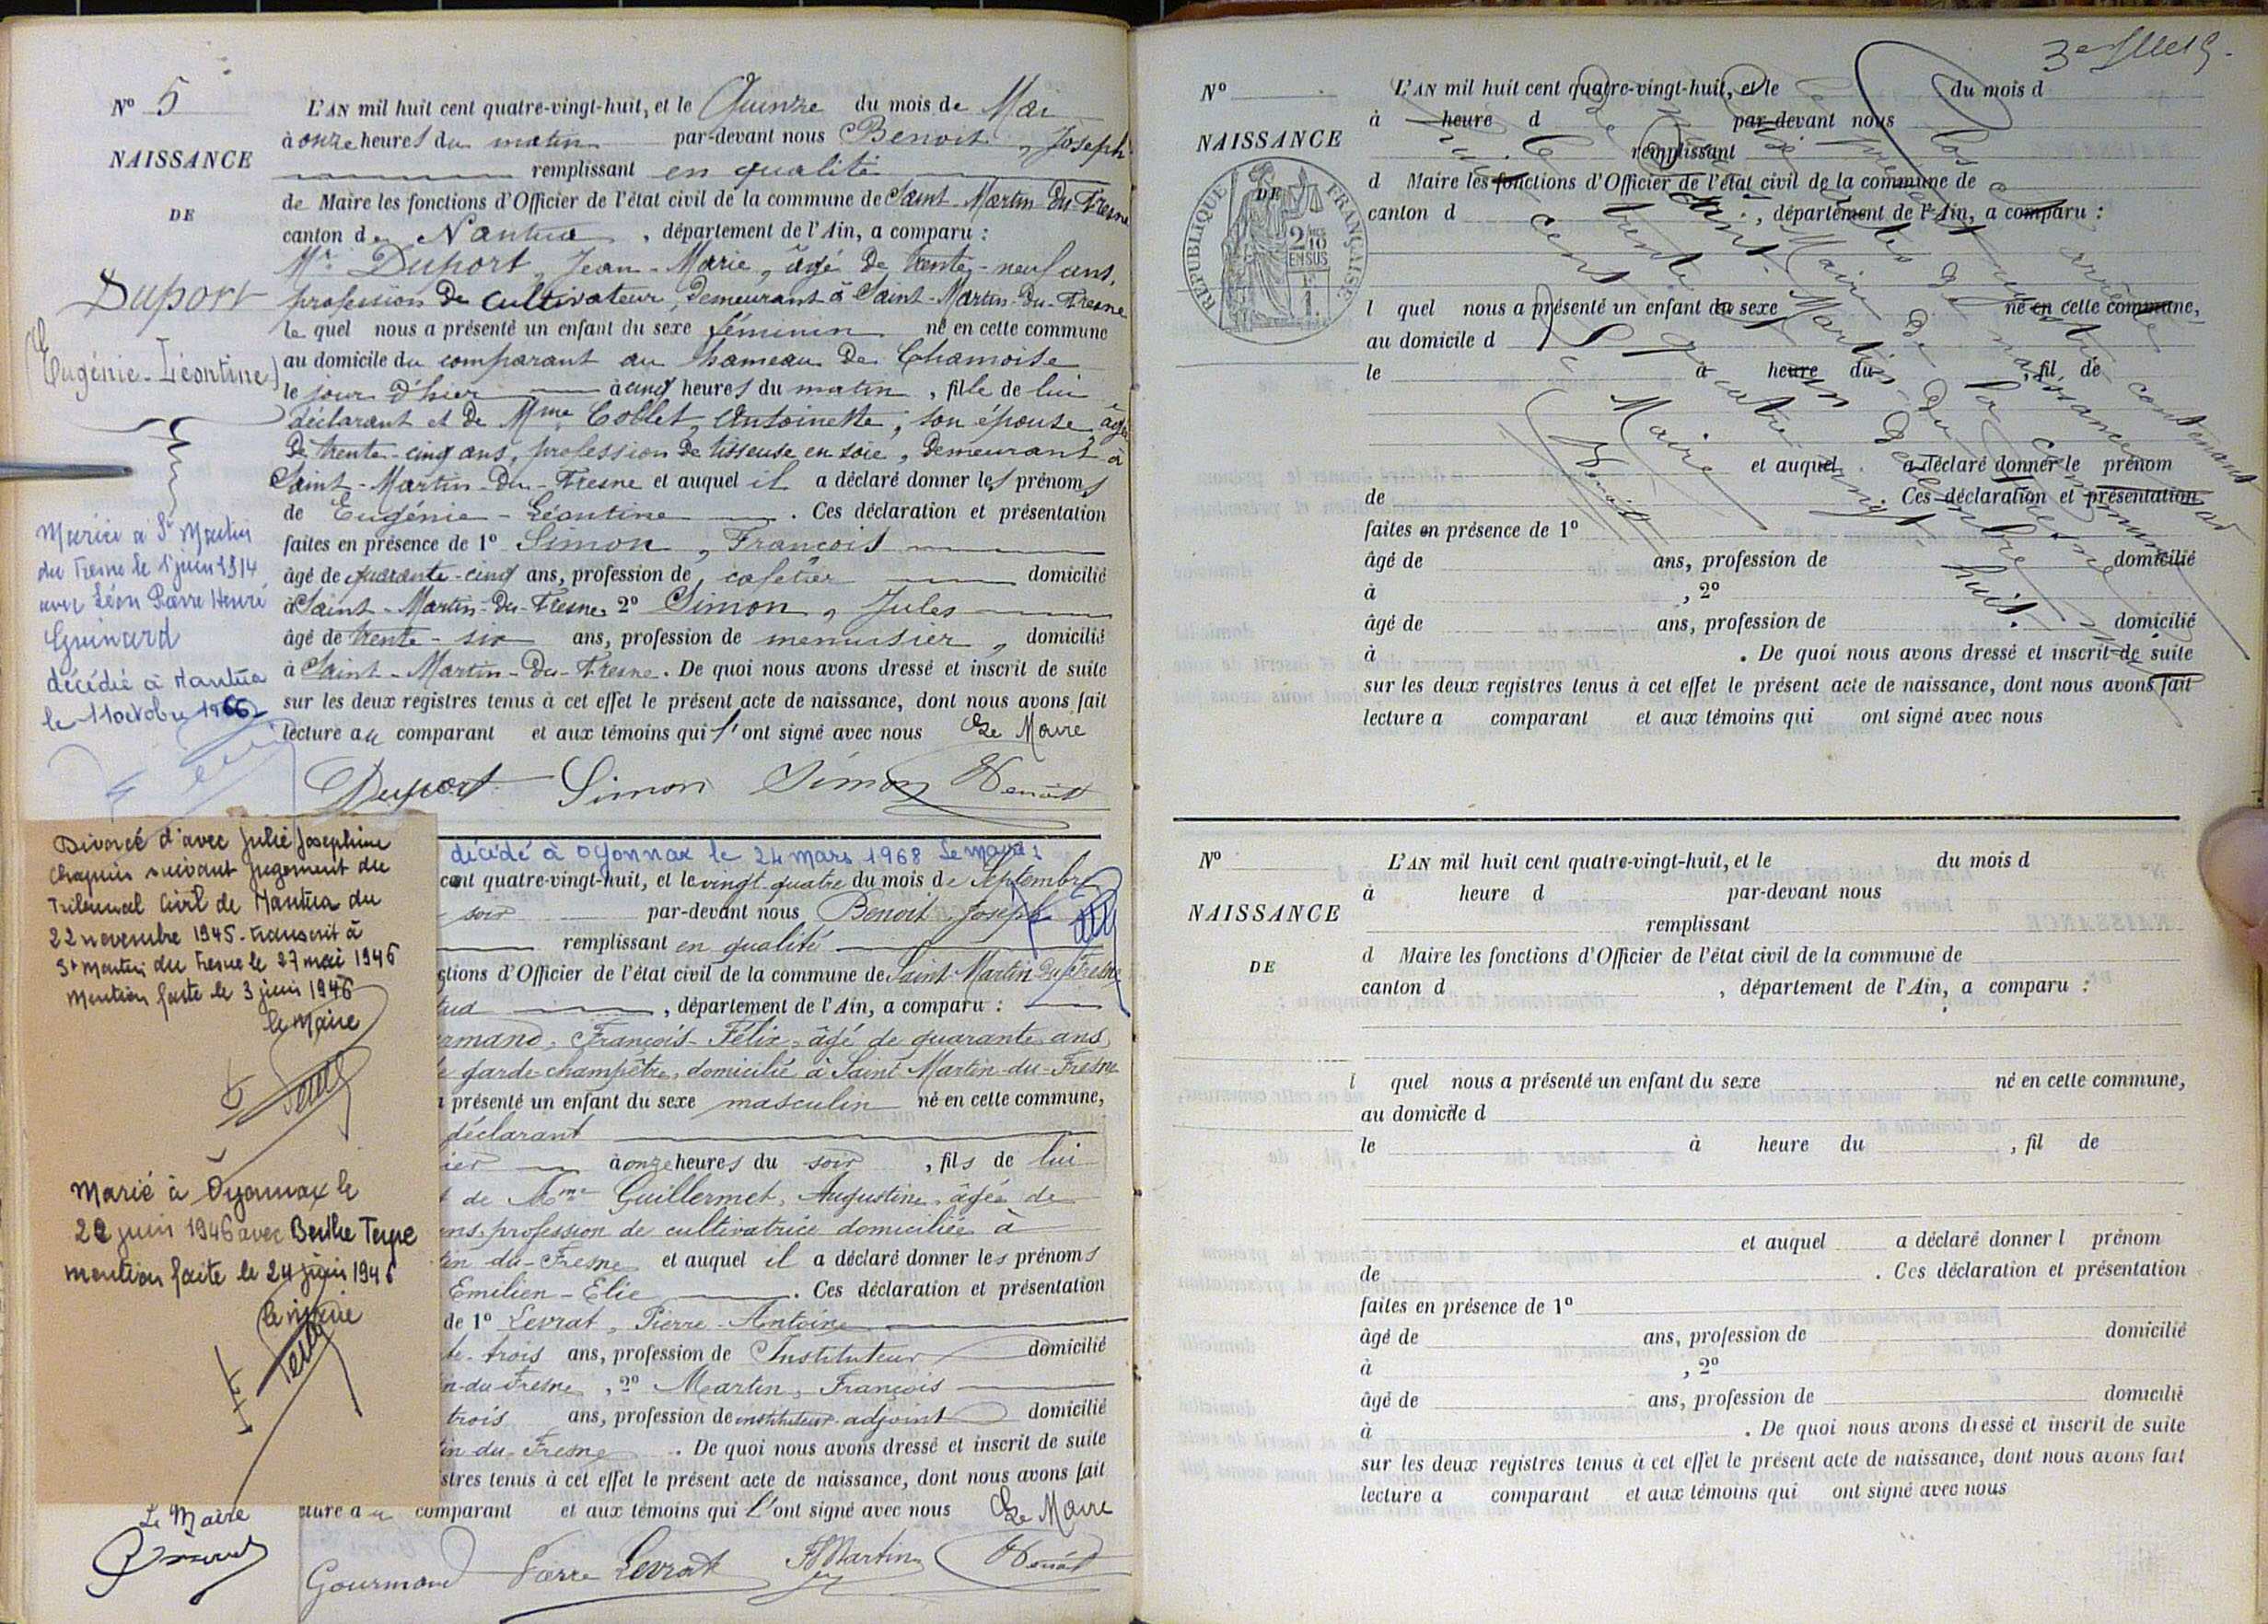 Nº 5
NAISSANCE
DE
Duport
Eugénie-Léontine)
L'AN mil huit cent quatre-vingt-huit, et le Quinze du mois de Mai
à onze heures du matin par-devant nous Benoit, Joseph
remplissant en qualité
de Maire les fonctions d'Officier de l'état civil de la commune de Saint-Martin-du-Fresne
canton de Nantua, département de l'Ain, a comparu :
Mr Duport, Jean-Marie, âgé de trente-neuf ans,
profession de cultivateur, demeurant à Saint-Martin-du-Fresne
le quel nous a présenté un enfant du sexe féminin né en cette commune
au domicile du comparant au hameau de Chamoise
le jour d'hier à cinq heures du matin, fille de lui
déclarant et de Mme Collet, Antoinette, son épouse, âgée
de trente-cinq ans, profession de tisseuse en soie, demeurant à
Saint-Martin-du-Fresne et auquel il a déclaré donner les prénoms
de Eugénie-Léontine. Ces déclaration et présentation
faites en présence de 1º Simon, François
âgé de quarante-cinq ans, profession de cafetier domicilié
à Saint-Martin-du-Fresne, 2º Simon, Jules
âgé de trente-six ans, profession de menuisier, domicilié
à Saint-Martin-du-Fresne. De quoi nous avons dressé et inscrit de suite
sur les deux registres tenus à cet effet le présent acte de naissance, dont nous avons fait
lecture au comparant et aux témoins qui l'ont signé avec nous Le Maire
Duport Simon Simon Benoit
Mariée à St Martin
du Fresne le 1 juin 1914
avec Léon Pierre Henri
Guinard
décédée à Nantua
le 11 octobre 1966
Divorcé d'avec Julie Josephine
Chapuis suivant jugement du
Tribunal Civil de Nantua du
22 novembre 1945. transcrit à
St Martin du Fresne le 27 mai 1946
Mention faite le 3 juin 1946
le Maire
Marié à Oyonnax le
22 juin 1946 avec Berthe Terpe
mention faite le 24 juin 1946
le maire
Le Maire
décédé à Oyonnax le 24 mars 1968 Le maire :
cent quatre-vingt-huit, et le vingt-quatre du mois de Septembre
soir par-devant nous Benoit, Joseph
remplissant en qualité
ctions d'Officier de l'état civil de la commune de Saint Martin du Fresne
tua, département de l'Ain, a comparu :
rmand, François-Félix, âgé de quarante ans,
e garde-champêtre, domicilié à Saint Martin-du-Fresne
a présenté un enfant du sexe masculin né en cette commune,
déclarant
ier à onze heures du soir, fils de lui
t de Mme Guillermet, Augustine, âgée de
ans, profession de cultivatrice domiciliée à
tin-du-Fresne et auquel il a déclaré donner les prénoms
Emilien-Elie. Ces déclaration et présentation
de 1º Levrat, Pierre-Antoine
te-trois ans, profession de Instituteur domicilié
n-du-Fresne, 2º Martin, François
trois ans, profession de instituteur-adjoint domicilié
tin-du-Fresne. De quoi nous avons dressé et inscrit de suite
stres tenus à cet effet le présent acte de naissance, dont nous avons fait
cture au comparant et aux témoins qui l'ont signé avec nous Le Maire
Gourmand Pierre Levrat F Martin Benoit
Nº
NAISSANCE
DE
RÉPUBLIQUE FRANÇAISE
2/10 EN SUS
L'AN mil huit cent quatre-vingt-huit, et le du mois d
à heure d par-devant nous
remplissant
d Maire les fonctions d'Officier de l'état civil de la commune de
canton d , département de l'Ain, a comparu :
l quel nous a présenté un enfant du sexe né en cette commune,
au domicile d
le à heure du , fil de
et auquel a déclaré donner le prénom
de . Ces déclaration et présentation
faites en présence de 1º
âgé de ans, profession de domicilié
à , 2º
âgé de ans, profession de domicilié
à . De quoi nous avons dressé et inscrit de suite
sur les deux registres tenus à cet effet le présent acte de naissance, dont nous avons fait
lecture a comparant et aux témoins qui ont signé avec nous
Le Maire
Benoit
Nº
NAISSANCE
DE
L'AN mil huit cent quatre-vingt-huit, et le du mois d
à heure d par-devant nous
remplissant
d Maire les fonctions d'Officier de l'état civil de la commune de
canton d , département de l'Ain, a comparu :
l quel nous a présenté un enfant du sexe né en cette commune,
au domicile d
le à heure du , fil de
et auquel a déclaré donner l prénom
de . Ces déclaration et présentation
faites en présence de 1º
âgé de ans, profession de domicilié
à , 2º
âgé de ans, profession de domicilié
à . De quoi nous avons dressé et inscrit de suite
sur les deux registres tenus à cet effet le présent acte de naissance, dont nous avons fait
lecture a comparant et aux témoins qui ont signé avec nous